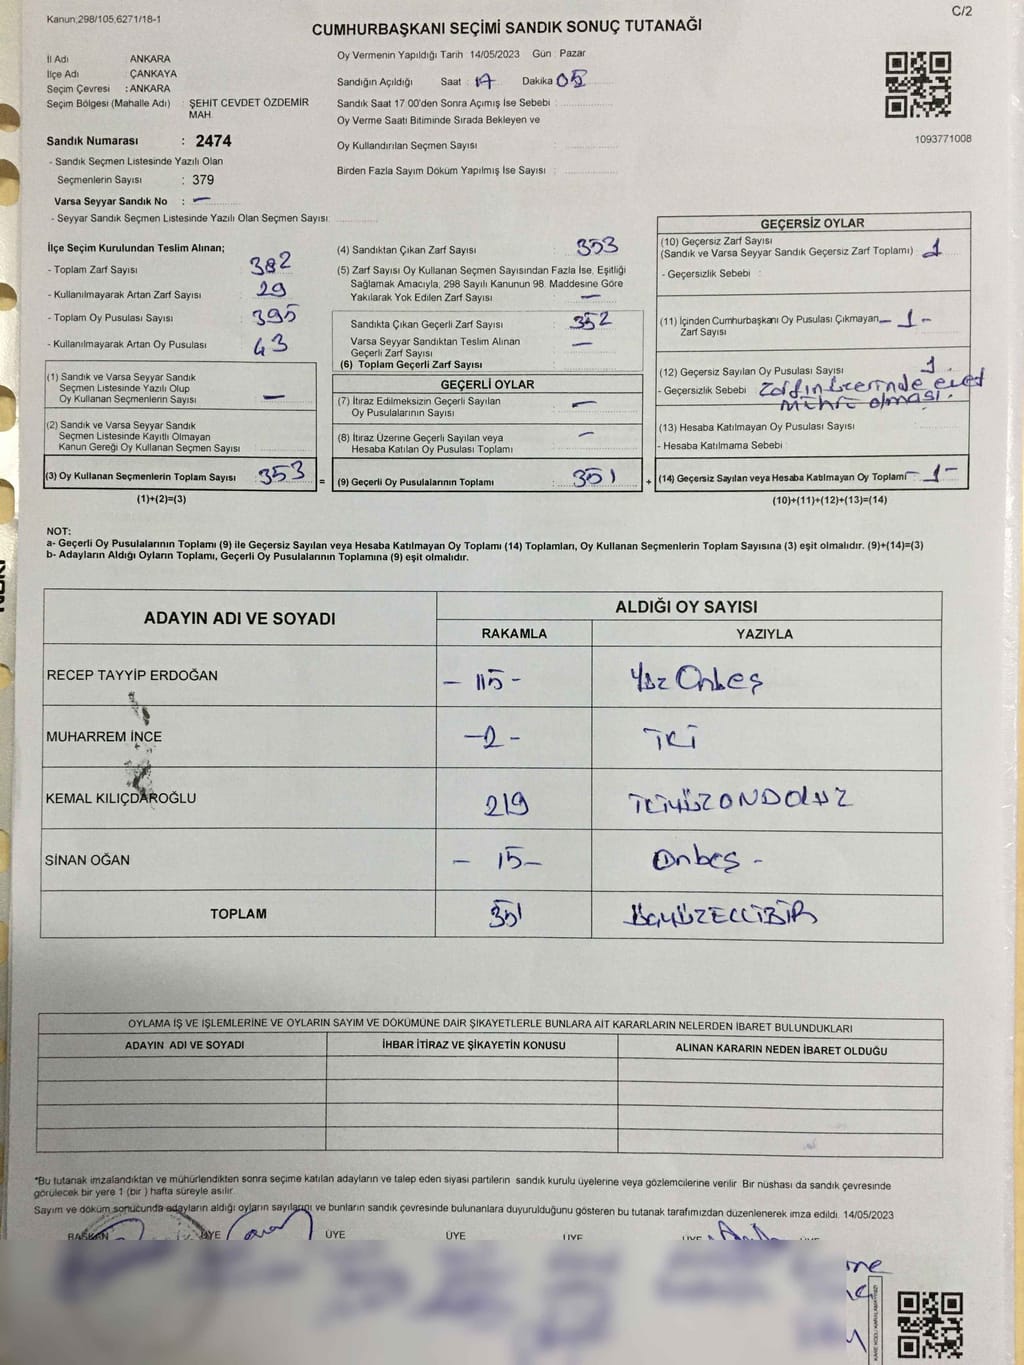 Kanun,298/105,6271/18-1
C/2
CUMHURBAŞKANI SEÇİMİ SANDIK SONUÇ TUTANAĞI
İl Adı ANKARA
İlçe Adı ÇANKAYA
Seçim Çevresi : ANKARA
Seçim Bölgesi (Mahalle Adı) : ŞEHİT CEVDET ÖZDEMİR
MAH.
Sandık Numarası : 2474
- Sandık Seçmen Listesinde Yazılı Olan
Seçmenlerin Sayısı : 379
Varsa Seyyar Sandık No : —
- Seyyar Sandık Seçmen Listesinde Yazılı Olan Seçmen Sayısı:
Oy Vermenin Yapıldığı Tarih 14/05/2023 Gün : Pazar
Sandığın Açıldığı Saat : 17 Dakika 05
Sandık Saat 17.00'den Sonra Açımış İse Sebebi :
Oy Verme Saati Bitiminde Sırada Bekleyen ve
Oy Kullandırılan Seçmen Sayısı :
Birden Fazla Sayım Döküm Yapılmış İse Sayısı :
1093771008
İlçe Seçim Kurulundan Teslim Alınan;
- Toplam Zarf Sayısı : 382
- Kullanılmayarak Artan Zarf Sayısı : 29
- Toplam Oy Pusulası Sayısı : 395
- Kullanılmayarak Artan Oy Pusulası : 43
(1) Sandık ve Varsa Seyyar Sandık
Seçmen Listesinde Yazılı Olup
Oy Kullanan Seçmenlerin Sayısı : —
(2) Sandık ve Varsa Seyyar Sandık
Seçmen Listesinde Kayıtlı Olmayan
Kanun Gereği Oy Kullanan Seçmen Sayısı :
(3) Oy Kullanan Seçmenlerin Toplam Sayısı : 353
(1)+(2)=(3)
=
(4) Sandıktan Çıkan Zarf Sayısı : 353
(5) Zarf Sayısı Oy Kullanan Seçmen Sayısından Fazla İse, Eşitliği
Sağlamak Amacıyla, 298 Sayılı Kanunun 98. Maddesine Göre
Yakılarak Yok Edilen Zarf Sayısı : —
Sandıkta Çıkan Geçerli Zarf Sayısı : 352
Varsa Seyyar Sandıktan Teslim Alınan
Geçerli Zarf Sayısı : —
(6) Toplam Geçerli Zarf Sayısı :
GEÇERLİ OYLAR
(7) İtiraz Edilmeksizin Geçerli Sayılan
Oy Pusulalarının Sayısı : —
(8) İtiraz Üzerine Geçerli Sayılan veya
Hesaba Katılan Oy Pusulası Toplamı : —
(9) Geçerli Oy Pusulalarının Toplamı : 351
+
GEÇERSİZ OYLAR
(10) Geçersiz Zarf Sayısı
(Sandık ve Varsa Seyyar Sandık Geçersiz Zarf Toplamı) : 1
- Geçersizlik Sebebi :
(11) İçinden Cumhurbaşkanı Oy Pusulası Çıkmayan — 1 -
Zarf Sayısı
(12) Geçersiz Sayılan Oy Pusulası Sayısı : 1
- Geçersizlik Sebebi : Zarfın üzerinde evet
mührü olması.
(13) Hesaba Katılmayan Oy Pusulası Sayısı :
- Hesaba Katılmama Sebebi :
(14) Geçersiz Sayılan veya Hesaba Katılmayan Oy Toplamı - 1 -
(10)+(11)+(12)+(13)=(14)
NOT:
a- Geçerli Oy Pusulalarının Toplamı (9) ile Geçersiz Sayılan veya Hesaba Katılmayan Oy Toplamı (14) Toplamları, Oy Kullanan Seçmenlerin Toplam Sayısına (3) eşit olmalıdır. (9)+(14)=(3)
b- Adayların Aldığı Oyların Toplamı, Geçerli Oy Pusulalarının Toplamına (9) eşit olmalıdır.
ADAYIN ADI VE SOYADI
ALDIĞI OY SAYISI
RAKAMLA YAZIYLA
RECEP TAYYİP ERDOĞAN — 115 - Yüz Onbeş
MUHARREM İNCE — 2 - İKİ
KEMAL KILIÇDAROĞLU 219 İKİYÜZONDOKUZ
SİNAN OĞAN — 15 — Onbeş -
TOPLAM 351 ÜÇYÜZELLİBİR
OYLAMA İŞ VE İŞLEMLERİNE VE OYLARIN SAYIM VE DÖKÜMÜNE DAİR ŞİKAYETLERLE BUNLARA AİT KARARLARIN NELERDEN İBARET BULUNDUKLARI
ADAYIN ADI VE SOYADI İHBAR İTİRAZ VE ŞİKAYETİN KONUSU ALINAN KARARIN NEDEN İBARET OLDUĞU
*Bu tutanak imzalandıktan ve mühürlendikten sonra seçime katılan adayların ve talep eden siyasi partilerin sandık kurulu üyelerine veya gözlemcilerine verilir. Bir nüshası da sandık çevresinde
görülecek bir yere 1 (bir ) hafta süreyle asılır.
Sayım ve döküm sonucunda adayların aldığı oyların sayılarını ve bunların sandık çevresinde bulunanlara duyurulduğunu gösteren bu tutanak tarafımızdan düzenlenerek imza edildi. 14/05/2023
BAŞKAN ÜYE ÜYE ÜYE ÜYE ÜYE